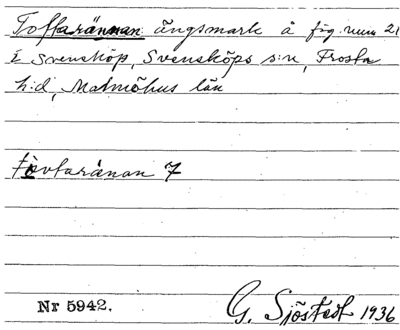 Toffarännan ängsmark å fig. num 21
i Svensköp, Svensköps s:n, Frosta
h:d, Malmöhus län
tòvtaränan 7
Nr 5942.
G. Sjöstedt 1936